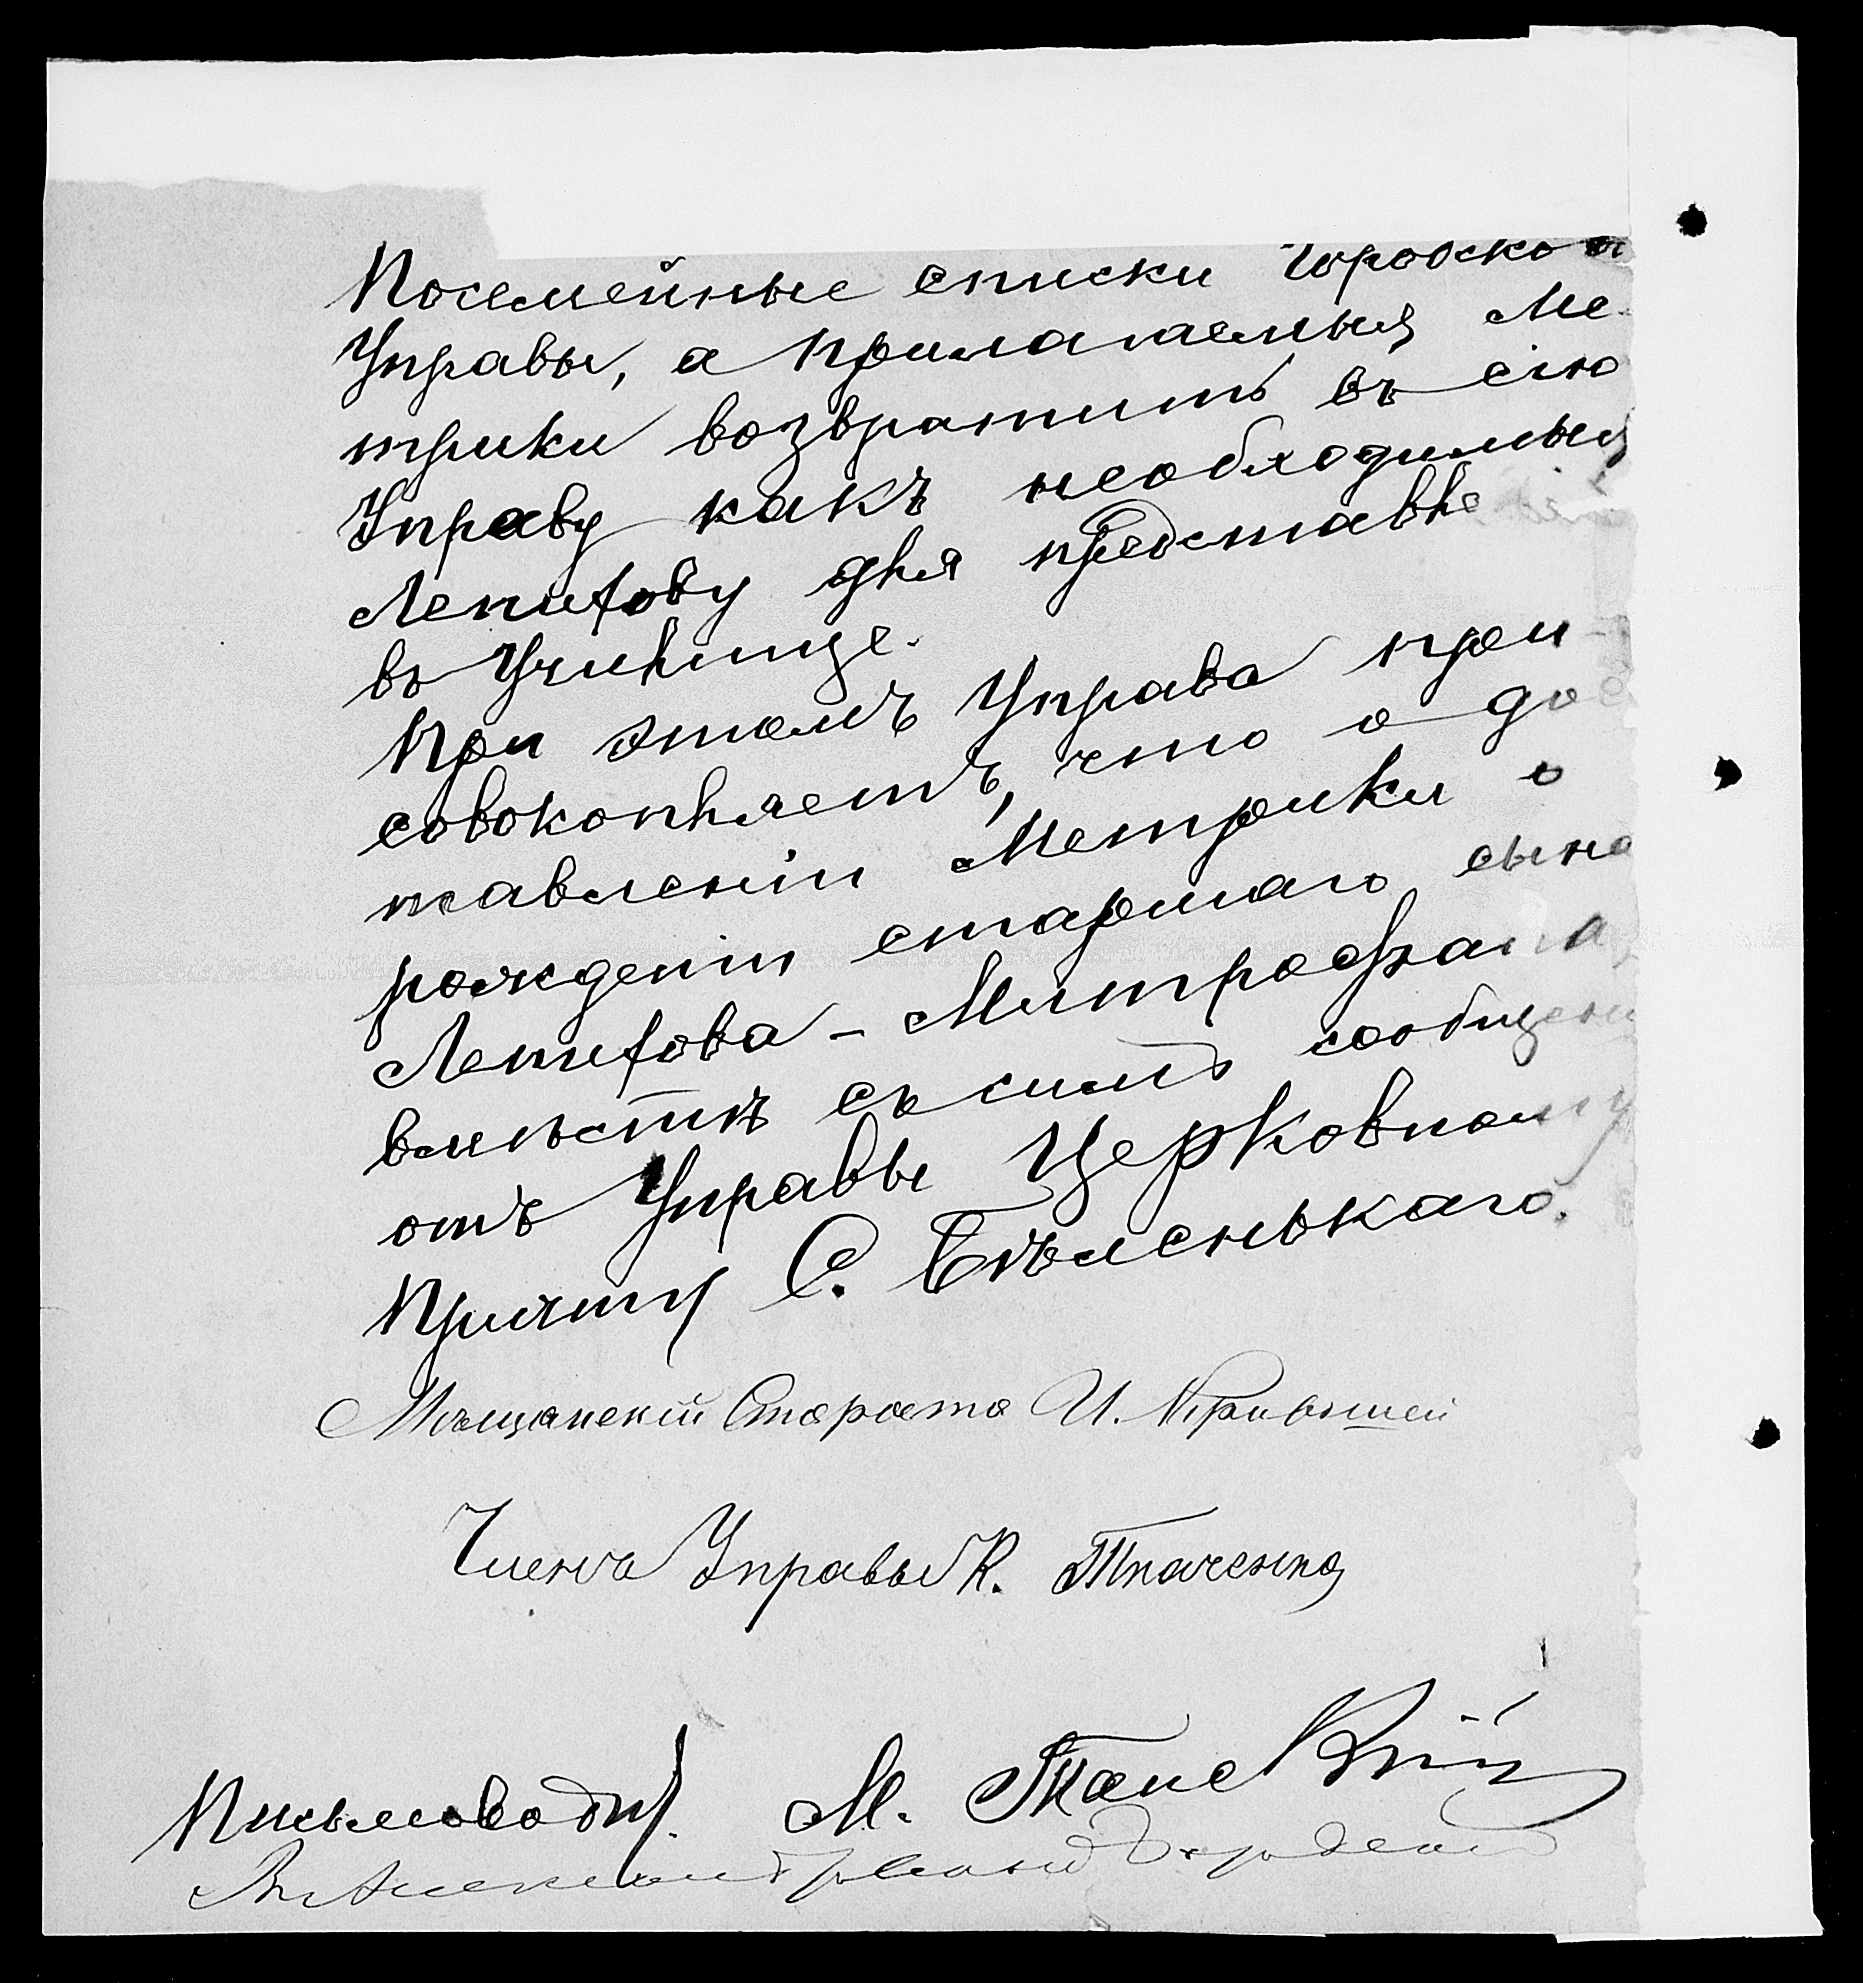 Посемейные списки Городской
Управы, а прилагаемыя Ме-
трики возвратить въ сію
Управу какъ необходимыя
Лепитову для представле
въ Училище.
При этомъ Управа при-
совокопляетъ, что о дос
тавленіи Метрики о
рожденіи старшаго сына
Лепитова - Митрофана,
вмѣстѣ съ симъ сообщено
отъ Управы Церковному
Причту С. Бѣленькаго.
Мѣщанскій Староста И.
Членъ Управы К. Ткаченко
Письмоводит. М.